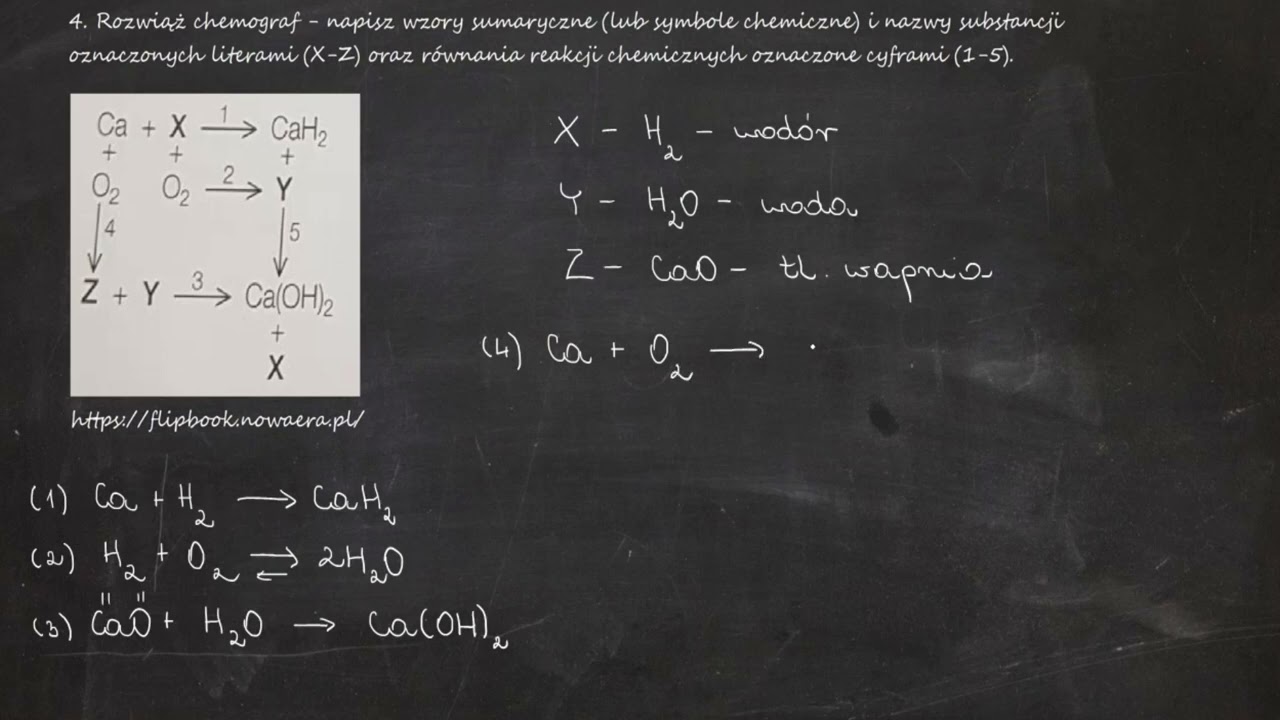 4. Rozwiąż chemograf - napisz wzory sumaryczne (lub symbole chemiczne) i nazwy substancji
oznaczonych literami (X-Z) oraz równania reakcji chemicznych oznaczone cyframi (1-5).
Ca + X —1→ CaH₂
+ + +
O₂ O₂ —2→ Y
↓4 ↓5
Z + Y —3→ Ca(OH)₂
+
X
https://flipbook.nowaera.pl/
X - H₂ - wodór
Y - H₂O - woda
Z - CaO - tl. wapnia
(4) Ca + O₂ → .
(1) Ca + H₂ → CaH₂
(2) H₂ + O₂ ⇄ 2H₂O
II II
(3) CaO + H₂O → Ca(OH)₂